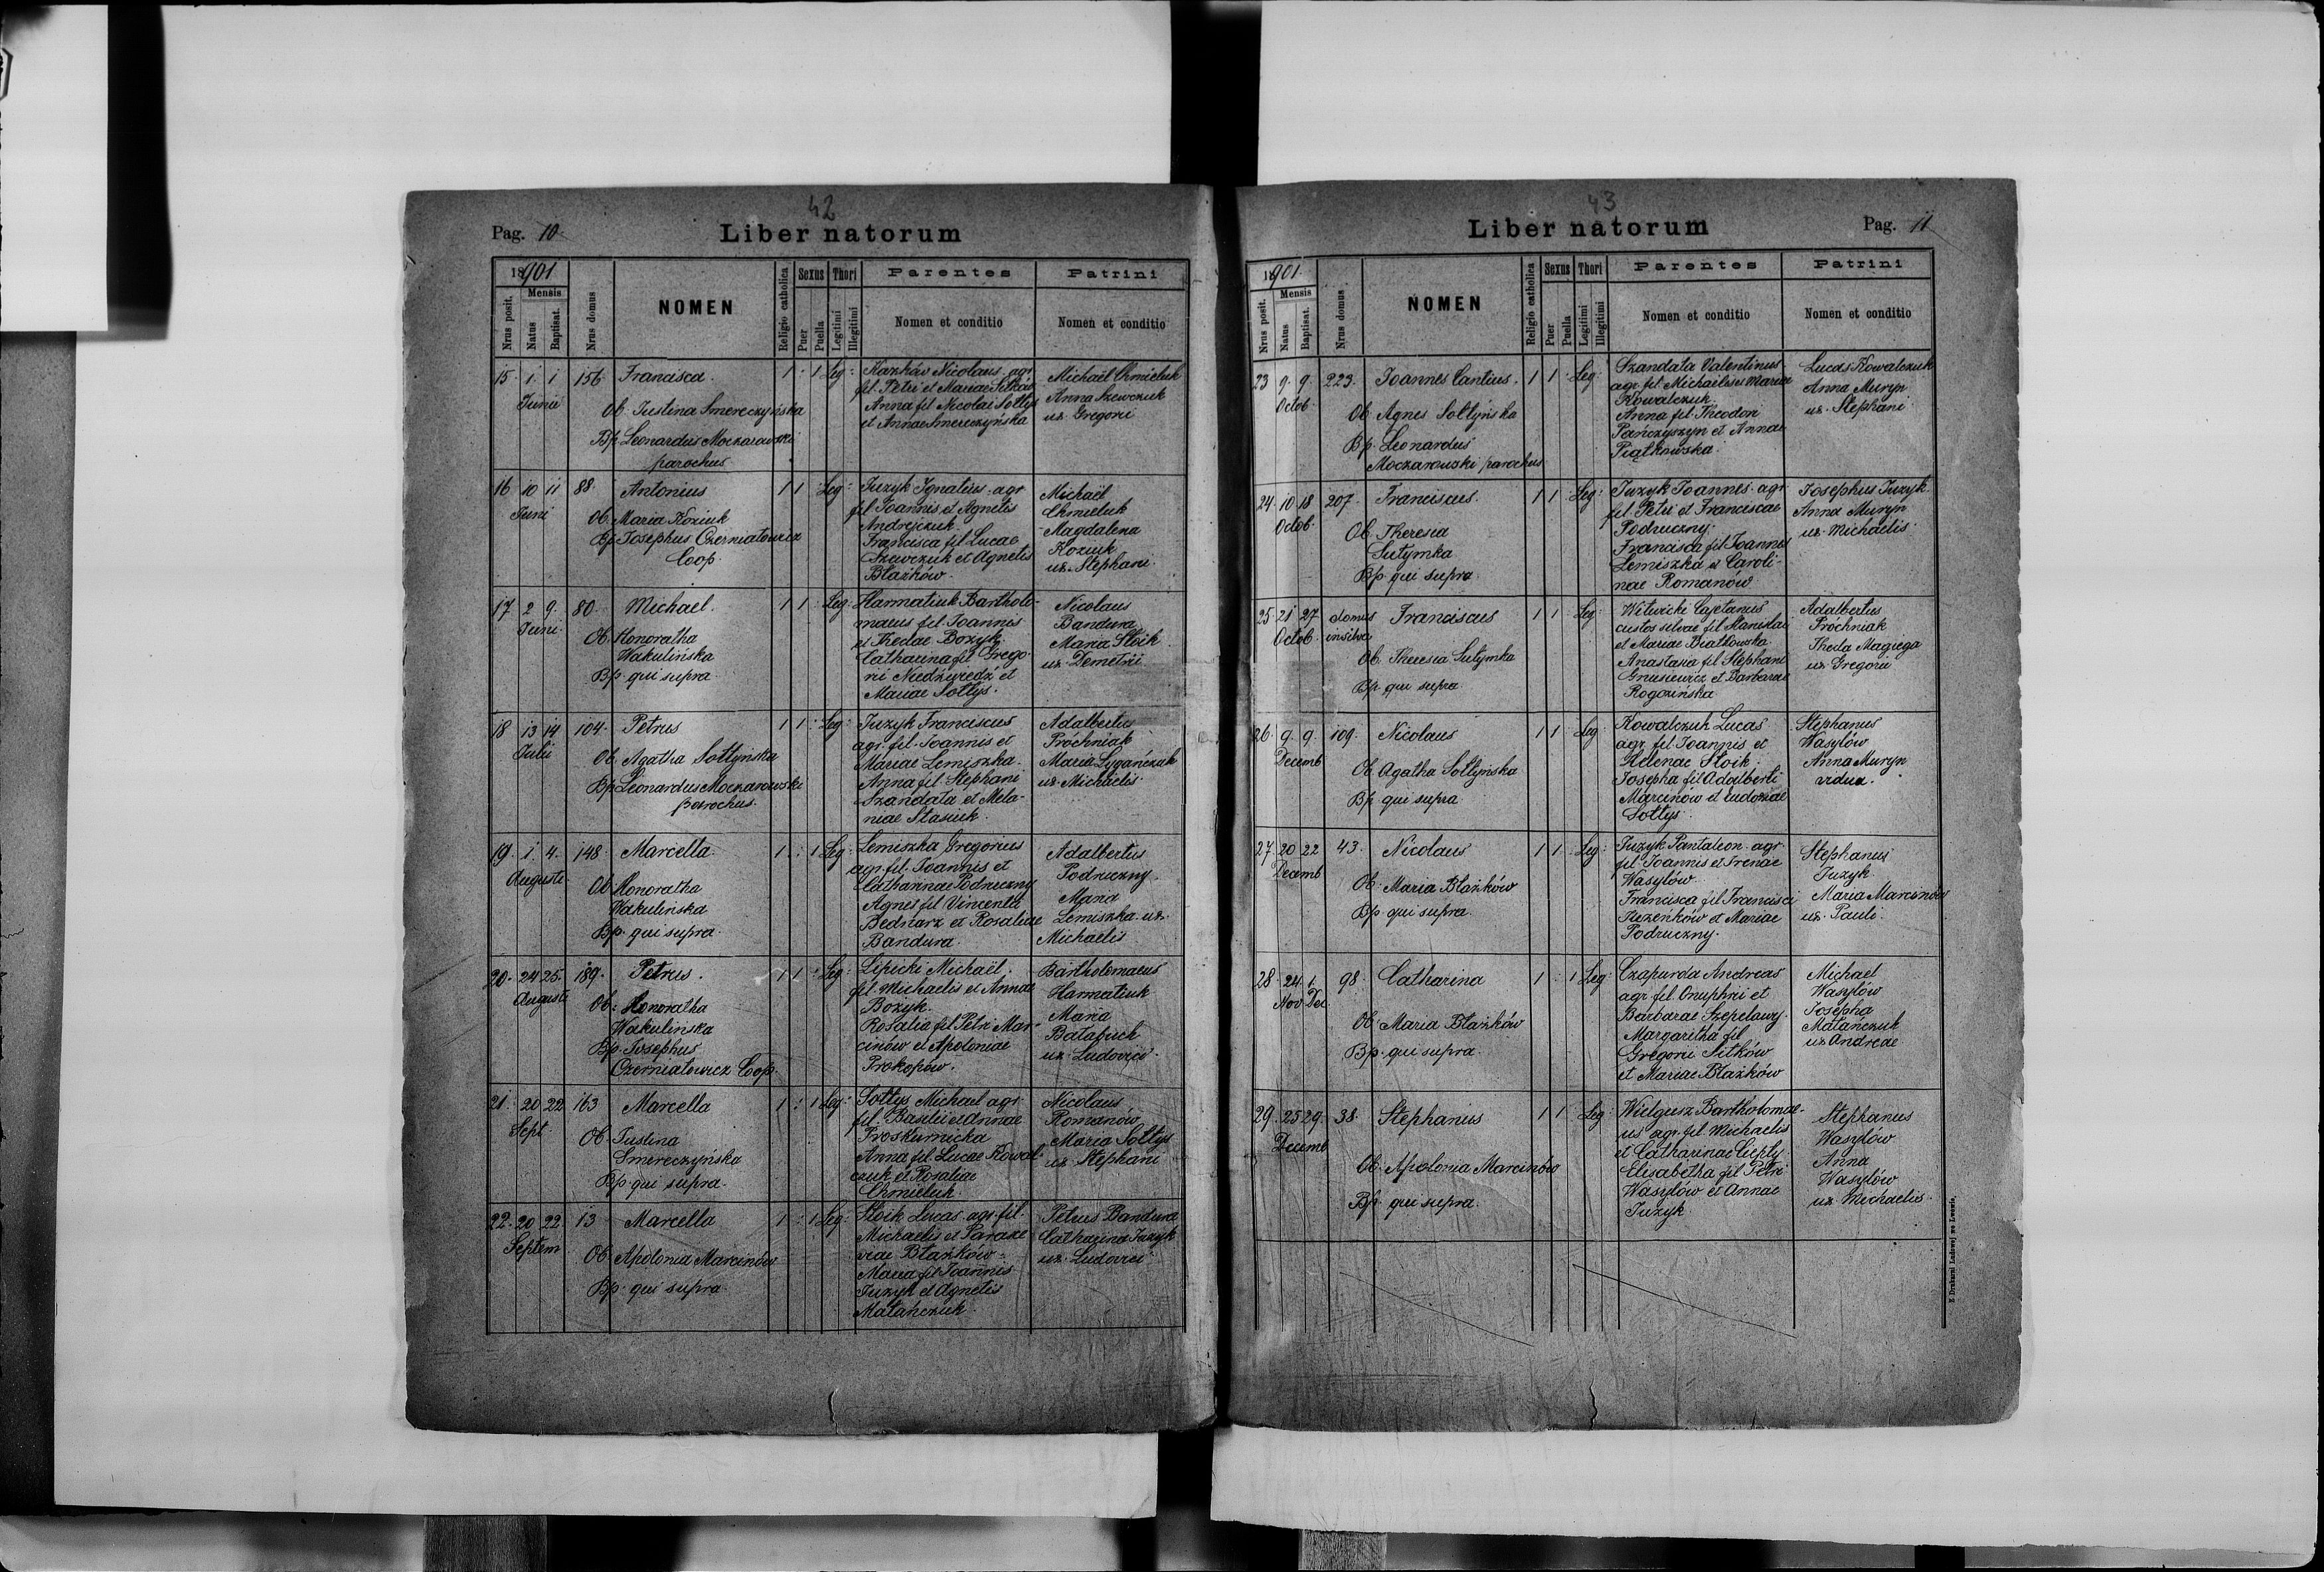 42
Pag. 10
Liber natorum
1901
Mensis
Nrus posit.
Natus
Baptisat.
Nrus domus
NOMEN
Religio catholica
Sexus
Puer
Puella
Thori
Legitimi
Illegitimi
Parentes
Nomen et conditio
Patrini
Nomen et conditio
15 1 1 156 Francisca 1 : 1 Leg:
Junii
Ob. Justina Smereczyńska
Bp Leonardus Moczarowski
parochus
Kazków Nicolaus agr
fil. Petri et Mariae Sitków
Anna fil Nicolai Sołtys
et Annae Smereczyńska
Michaël Chmieluk
Anna Szewczuk
ux. Gregorii
16 10 11 88 Antonius 1 1 : Leg:
Juni
Ob. Maria Koziuk
Bp Josephus Czerniatowicz
Coop.
Juzyk Ignatius agr
fil Joannis et Agnetis
Andrejczuk.
Francisca fil Lucae
Szewczuk et Agnetis
Błażków.
Michaël
Chmieluk
Magdalena
Koziuk
ux. Stephani.
17 2 9 80 Michael. 1 1 : Leg:
Juni
Ob. Honoratha
Wakulińska
Bp. qui supra
Harmatiuk Bartholo-
maeus fil Joannis
et Theclae Bozyk.
Catharina fil Grego-
rii Niedźwiedź et
Mariae Sołtys.
Nicolaus
Bandura
Maria Słoik
ux Demetrii
18 13 14 104 Petrus 1 1 : Leg:
Julii
Ob. Agatha Sołtyńska
Bp Leonardus Moczarowski
parochus.
Juzyk Franciscus
agr. fil. Joannis et
Mariae Lemiszka.
Anna fil Stephani
Szandała et Mela-
niae Stasiuk.
Adalbertus
Próchniak
Maria Cygańczuk
ux Michaelis.
19 1 4 148 Marcella 1 : 1 Leg:
Augusti
Ob. Honoratha
Wakulińska
Bp. qui supra.
Lemiszka Gregorius
agr. fil. Joannis et
Catharinae Podruczny
Agnes fil Vincenta
Bednarz et Rosaliae
Bandura.
Adalbertus
Podruczny
Maria
Lemiszka ux.
Michaelis
20 24 25 189 Petrus. 1 1 : Leg:
Augusti
Ob: Honoratha
Wakulińska
Bp. Josephus
Czerniatowicz Coop.
Lipicki Michaël.
fil Michaelis et Annae
Bozyk.
Rosalia fil Petri Mar-
cinów et Apoloniae
Prokopów.
Bartholomaeus
Harmatiuk
Maria
ux Ludovici.
21 20 22 163 Marcella 1 : 1 Leg:
Sept.
Ob. Justina
Smereczyńska
Bp. qui supra.
Sołtys Michael agr
fil. Basilii et Annae
Proskurnicka
Anna fil. Lucae Kowal-
czuk et Rosaliae
Chmieluk
Nicolaus
Romanów
Maria Sołtys
ux Stephani
22 20 22 13 Marcella 1 : 1 Leg:
Septem
Ob. Apolonia Marcinów
Bp. qui supra.
Słoik Lucas agr. fil.
Michaelis et Paraxe
viae Błażków
Maria fil Joannis
Juzyk et Agnetis
Małańczuk
Petrus Bandura
Catharina Juzyk
ux. Ludovici
43
Liber natorum
Pag. 11
1901
Mensis
Nrus posit.
Natus
Baptisat.
Nrus domus
NOMEN
Religio catholica
Sexus
Puer
Puella
Thori
Legitimi
Illegitimi
Parentes
Nomen et conditio
Patrini
Nomen et conditio
23 9 9 223 Joannes Cantius. 1 1 : Leg:
Octob.
Ob. Agnes Sołtyńska
Bp Leonardus
Moczarowski parochus
Szandała Valentinus
agr. fil. Michaelis et Mariae
Kowalczuk.
Anna fil. Theodori
Pańczyszyn et Annae
Piątkowska.
Lucas Kowalczuk
Anna Muryn
ux. Stephani
24 10 18 207 Franciscus 1 1 : Leg:
Octob.
Ob. Theresia
Sutymka
Bp. qui supra.
Juzyk Joannes agr
fil. Petri et Franciscae
Podruczny.
Francisca fil Joannes
Lemiszka et Caroli-
nae Romanów
Josephus Juzyk
Anna Muryn
ux. Michaelis
25 21 27 domus Franciscus 1 1 : Leg:
Octob. in silva
Ob. Theresia Sutymka
Bp. qui supra
Witwicki Cajetanus
custos silvae fil Stanislai
et Mariae Białkowska
Anastasia fil Stephani
Gnusiewicz et Barbarae
Rogozińska
Adalbertus
Próchniak
Thecla Magiega
ux. Gregorii
26 9 9 109 Nicolaus 1 1 : Leg:
Decemb
Ob. Agatha Sołtyńska
Bp. qui supra
Kowalczuk Lucas
agr. fil Joannis et
Helenae Słoik.
Josepha fil Adalberti
Marcinów et Eudoxiae
Sołtys.
Stephanus
Wasylów
Anna Muryn
vidua.
27 20 22 43 Nicolaus 1 1 : Leg:
Decemb
Ob. Maria Błażków
Bp. qui supra.
Juzyk Pantaleon agr.
fil. Joannis et Irenae
Wasylów.
Francisca fil Francisci
Juzenków et Mariae
Podruczny.
Stephanus
Juzyk
Maria Marcinów
ux. Pauli.
28 24 1 98 Catharina 1 : 1 Leg:
Nov. Dec
Ob. Maria Błażków
Bp. qui supra.
Czaparda Andreas
agr. fil. Onuphrii et
Barbarae Szepelawy.
Margaritha fil
Gregorii Sitków
et Mariae Błażków
Michael
Wasylów
Josepha
Małańczuk
ux Andreae
29 25 29 38 Stephanus 1 1 : Leg:
Decemb
Ob. Apolonia Marcinów
Bp. qui supra.
Wielgusz Bartholomae-
us agr. fil. Michaelis
et Catharinae Ciepły.
Elisabetha fil Petri
Wasylów et Annae
Juzyk
Stephanus
Wasylów
Anna
Wasylów
ux Michaelis.
Z Drukarni Ludowej we Lwowie.